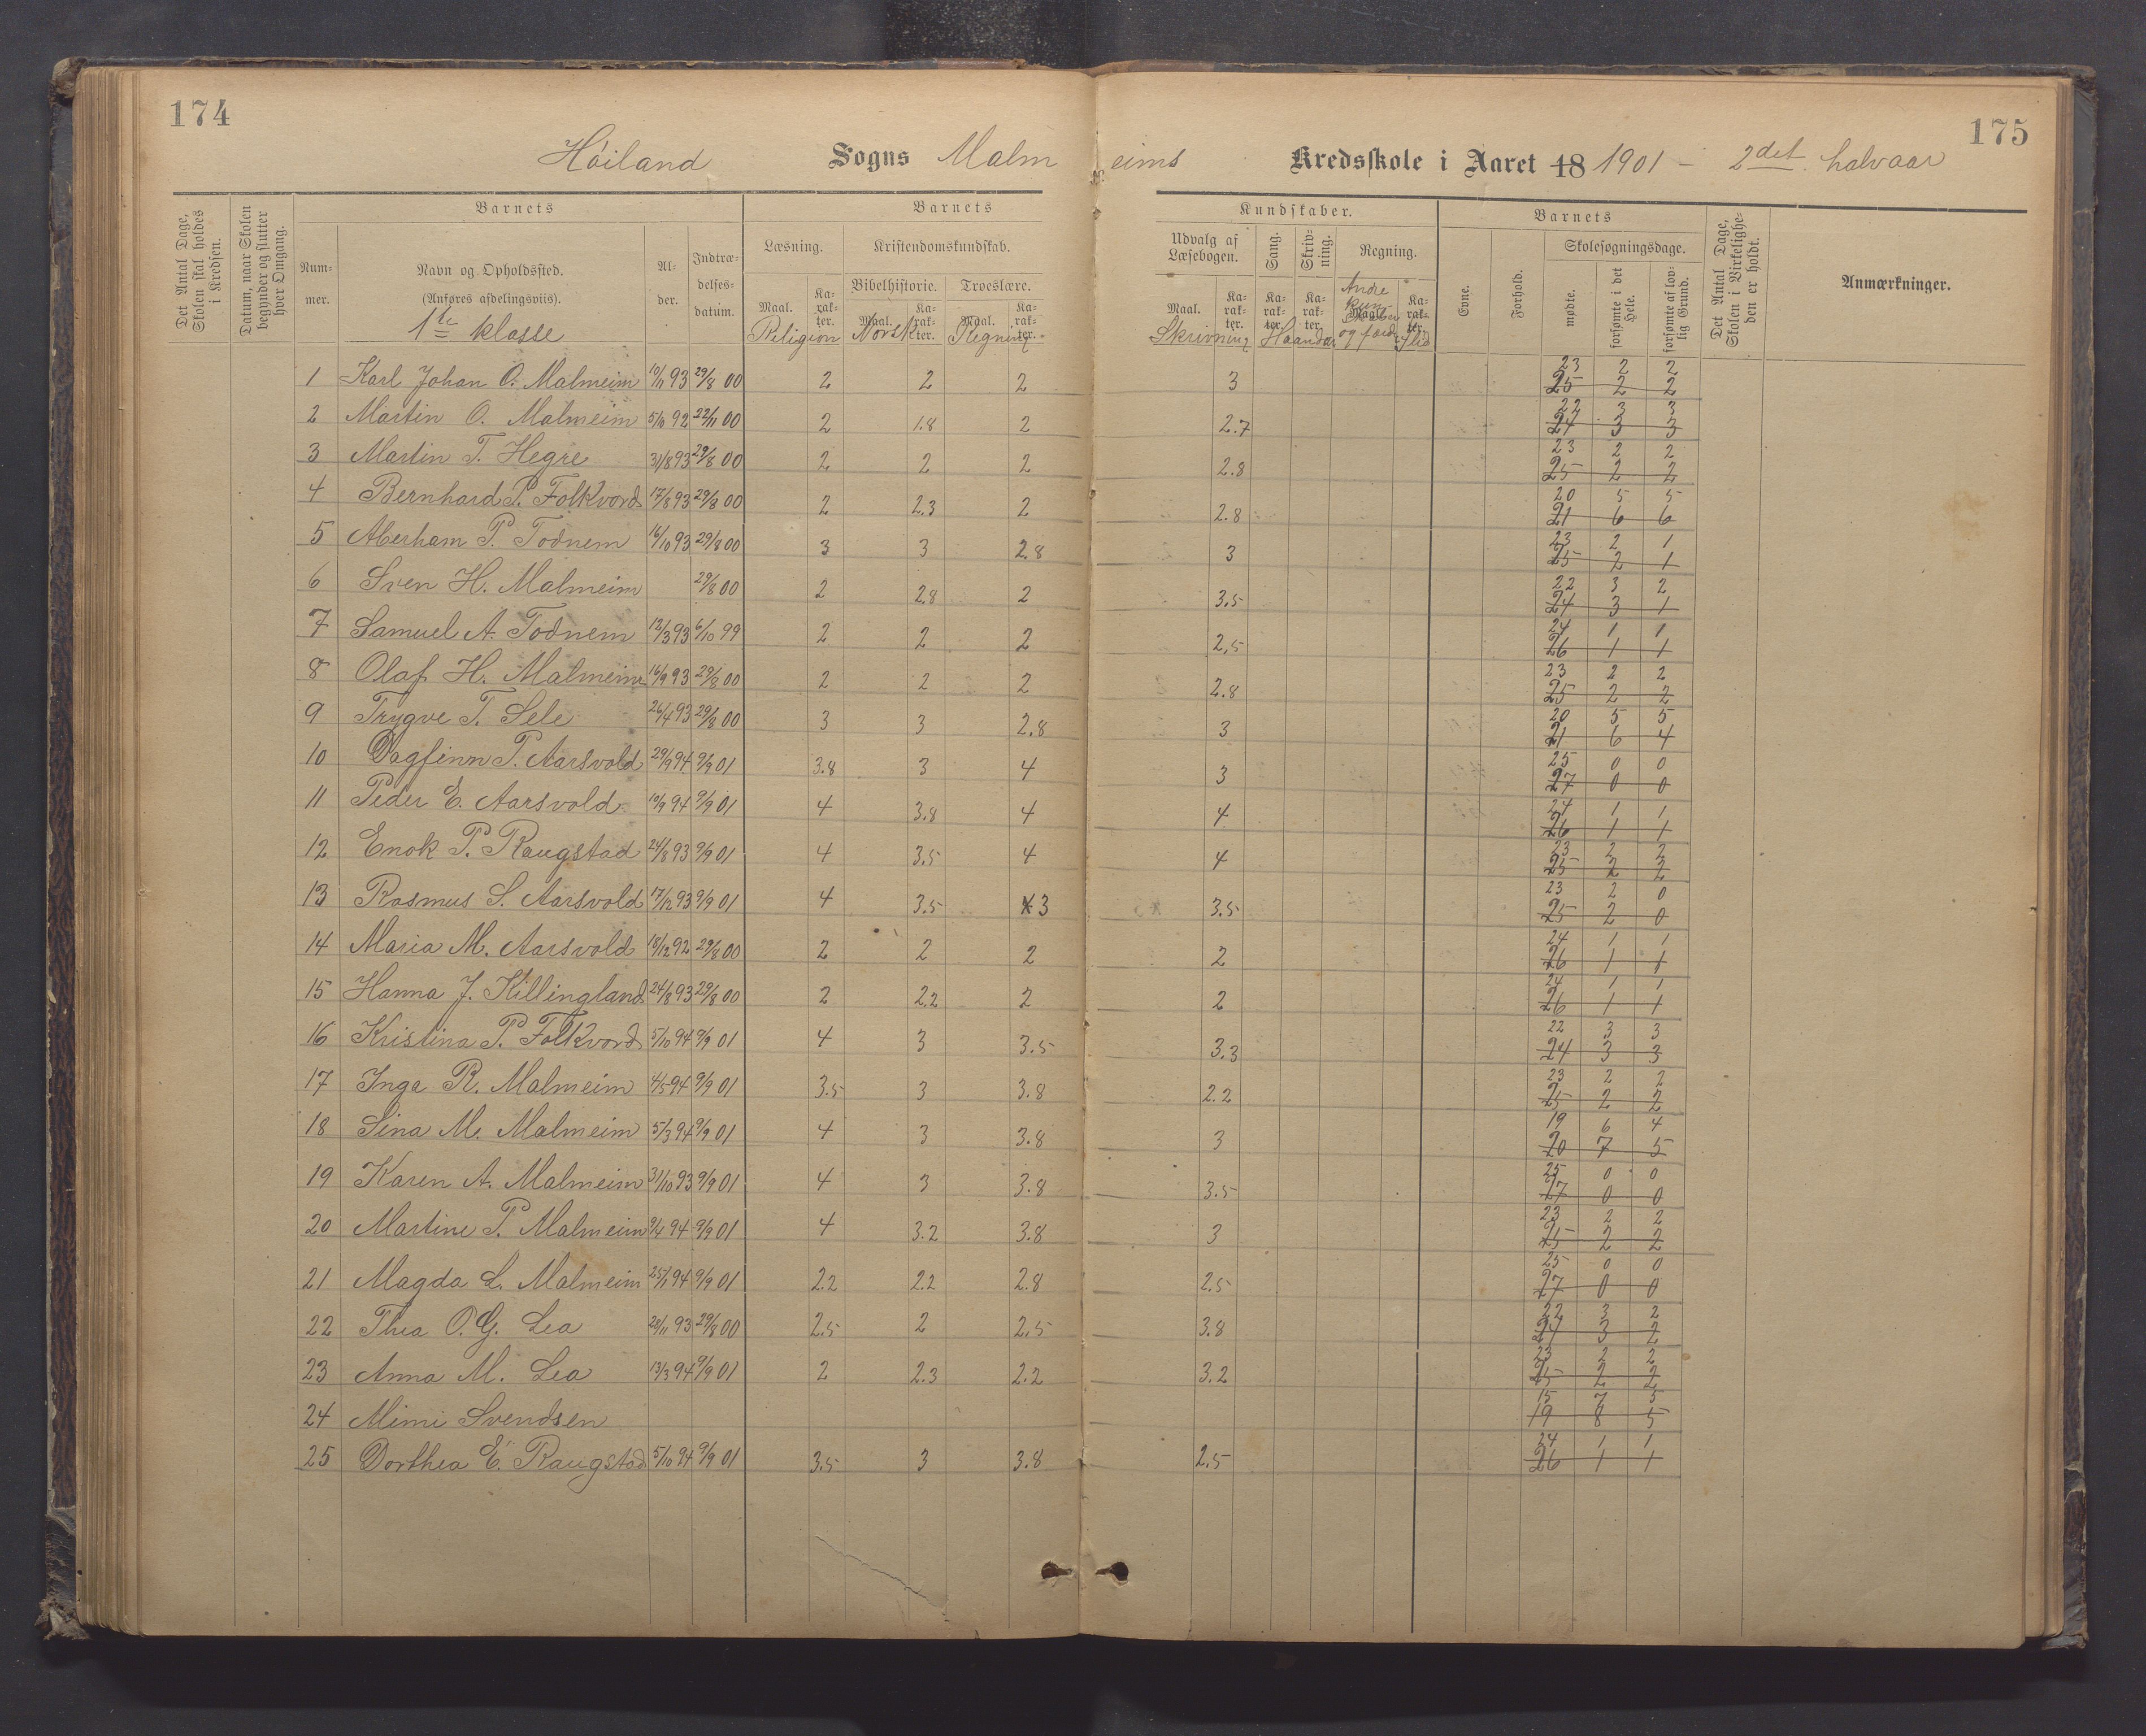 174
175
Höiland Sogns Malmeims Kredsskole i Aaret 18 1901 - 2det halvaar
Det Antal Dage, Skolen skal holdes i Kredsen.
Datum, naar Skolen begynder og slutter hver Omgang.
Barnets
Barnets
Kundskaber.
Barnets
Det Antal Dage, Skolen i Virkeligheden er holdt.
Anmærkninger.
Nummer.
Navn og Opholdssted.
(Anføres afdelingsviis).
1te klasse
Alder.
Indtrædelsesdatum.
Læsning.
Kristendomskundskab.
Bibelhistorie.
Troeslære.
Udvalg af Læsebogen.
Sang.
Skrivning.
Regning.
Evne.
Forhold.
Skolesøgningsdage.
mødte.
forsømte i det Hele.
forsømte af lovlig Grund.
Maal. Karakter. Maal. Karakter. Maal. Karakter. Maal. Karakter. Karakter. Karakter. Maal. Karakter.
Religion Norsk Regning Skrivning Haandar. Andre og færd. Flid
1 Karl Johan O. Malmeim 10/11 93 29/8 00 2 2 2 3 23 2 2
25 2 2
2 Martin O. Malmeim 5/10 92 22/11 00 2 1.8 2 2.7 22 3 3
24 3 3
3 Martin T. Hegre 31/8 93 29/8 00 2 2 2 2.8 23 2 2
25 2 2
4 Bernhard P. Folkvord 17/8 93 29/8 00 2 2.3 2 2.8 20 5 5
21 6 6
5 Aberham P. Todnem 16/10 93 29/8 00 3 3 2.8 3 23 2 1
25 2 1
6 Sven H. Malmeim 29/8 00 2 2.8 2 3.5 22 3 2
24 3 1
7 Samuel A. Todnem 12/3 93 6/10 99 2 2 2 2,5 24 1 1
26 1 1
8 Olaf H. Malmeim 16/9 93 29/8 00 2 2 2 2.8 23 2 2
25 2 2
9 Trygve T. Sele 26/4 93 29/8 00 3 3 2.8 3 20 5 5
21 6 4
10 Dagfinn P. Aarsvold 29/9 94 9/9 01 3.8 3 4 3 25 0 0
27 0 0
11 Peder E. Aarsvold 10/9 94 9/9 01 4 3.8 4 4 24 1 1
26 1 1
12 Enok P. Raugstad 24/8 93 9/9 01 4 3.5 4 4 23 2 2
25 2 2
13 Rasmus S. Aarsvold 17/12 93 9/9 01 4 3.5 3 3.5 23 2 0
25 2 0
14 Maria M. Aarsvold 18/12 92 29/8 00 2 2 2 2 24 1 1
26 1 1
15 Hanna J. Killingland 24/8 93 29/8 00 2 2.2 2 2 24 1 1
26 1 1
16 Kristina P. Folkvord 5/10 94 9/9 01 4 3 3.5 3.3 22 3 3
24 3 3
17 Inga R. Malmeim 4/5 94 9/9 01 3.5 3 3.8 2.2 23 2 2
25 2 2
18 Sina M. Malmeim 5/3 94 9/9 01 4 3 3.8 3 19 6 4
20 7 5
19 Karen A. Malmeim 31/10 93 9/9 01 4 3 3.8 3.5 25 0 0
27 0 0
20 Martine P. Malmeim 9/4 94 9/9 01 4 3.2 3.8 3 23 2 2
25 2 2
21 Magda L. Malmeim 25/1 94 9/9 01 2.2 2.2 2.8 2.5 25 0 0
27 0 0
22 Thea O.G. Lea 28/11 93 29/8 00 2.5 2 2.5 3.8 22 3 2
24 3 2
23 Anna M. Lea 13/3 94 9/9 01 2 2.3 2.2 3.2 23 2 2
25 2 2
24 Mimi Svendsen 15 7 5
19 8 5
25 Dorthea E. Raugstad 5/10 94 9/9 01 3.5 3 3.8 2.5 24 1 1
26 1 1